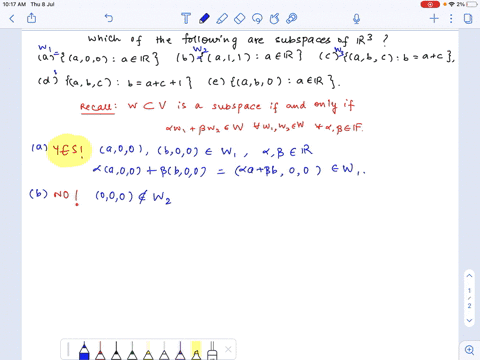 10:17 AM Thu 8 Jul
which of the following are subspaces of ℝ³ ?
W₁= W₂ W₃
(a) {(a,0,0) : a∈ℝ} (b) {(a,1,1) : a∈ℝ} (c) {(a,b,c) : b=a+c},
(d) {(a,b,c) : b=a+c+1} (e) {(a,b,0) : a∈ℝ}.
Recall: W⊂V is a subspace if and only if
αw₁+βw₂∈W ∀w₁,w₂∈W ∀α,β∈F.
(a) YES! (a,0,0), (b,0,0) ∈ W₁, α,β∈ℝ
α(a,0,0)+β(b,0,0) = (αa+βb, 0,0) ∈W₁.
(b) NO! (0,0,0) ∉ W₂
1
/
2